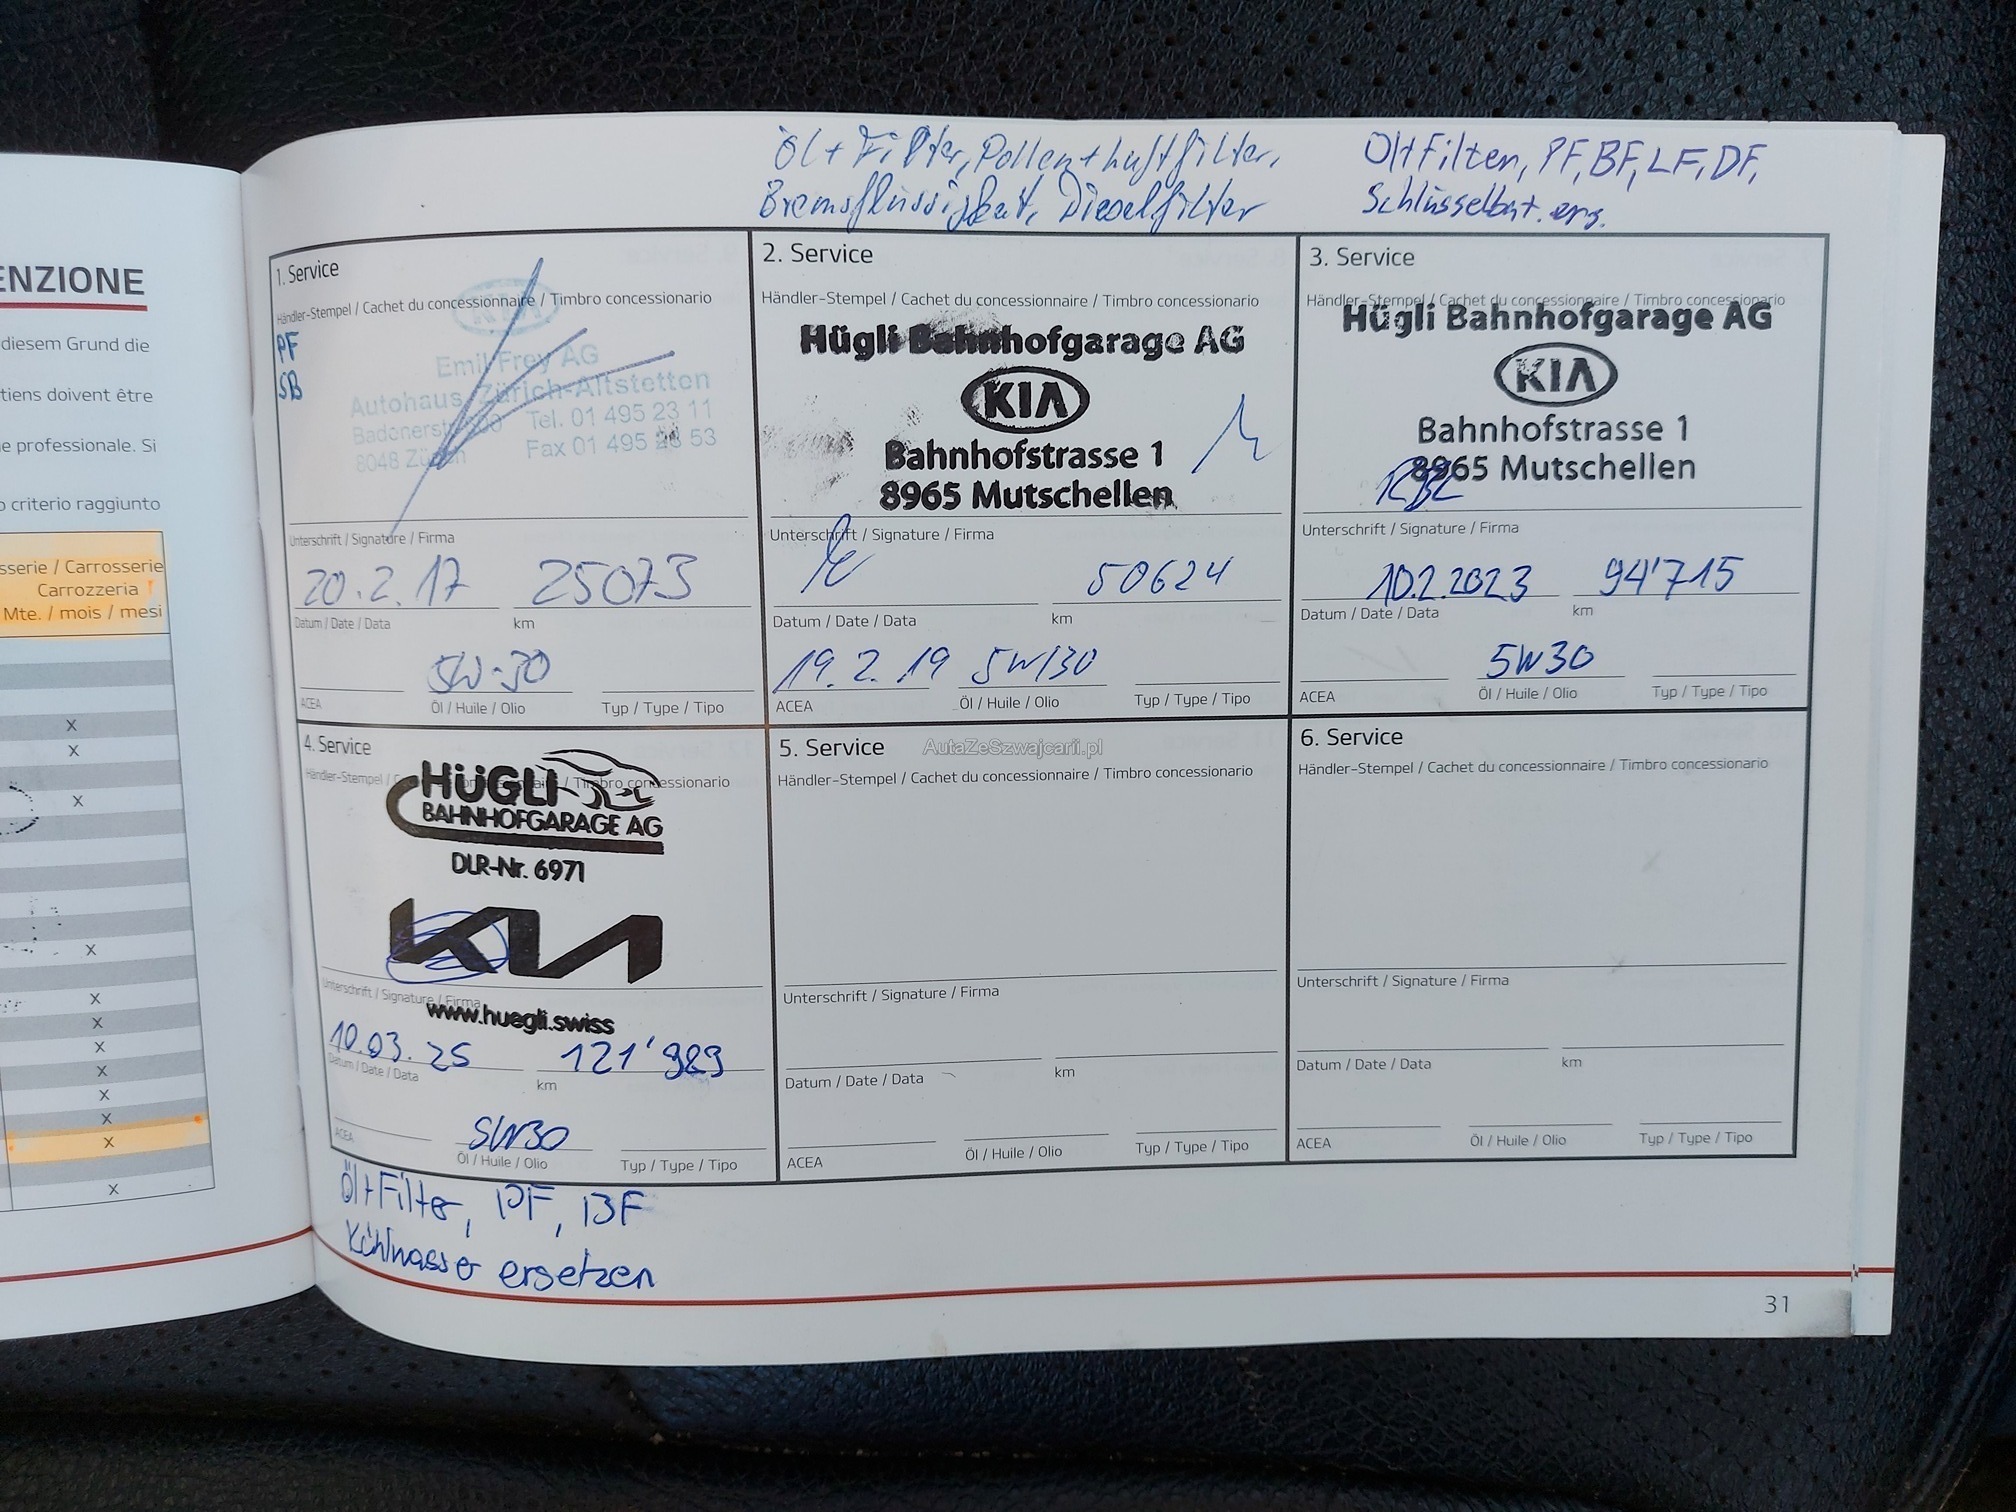 ENZIONE
diesem Grund die
tiens doivent être
e professionale. Si
o criterio raggiunto
sserie / Carrosserie
Carrozzeria
Mte. / mois / mesi
x
x
x
x
x
x
x
x
x
x
x
x
Öl + Filter, Pollen + Luftfilter,
Bremsflüssigkeit, Dieselfilter
Öl+Filter, PF, BF, LF, DF,
Schlüsselbat. ers.
1. Service
Händler-Stempel / Cachet du concessionnaire / Timbro concessionario
PF
SB
KIA
Emil Frey AG
Autohaus Zürich-Altstetten
Badenerstr. 600 Tel. 01 495 23 11
8048 Zürich Fax 01 495 23 53
Unterschrift / Signature / Firma
20.2.17 25073
Datum / Date / Data km
5W-30
ACEA Öl / Huile / Olio Typ / Type / Tipo
2. Service
Händler-Stempel / Cachet du concessionnaire / Timbro concessionario
Hügli Bahnhofgarage AG
KIA
Bahnhofstrasse 1
8965 Mutschellen
Unterschrift / Signature / Firma
50624
Datum / Date / Data km
19.2.19 5W/30
ACEA Öl / Huile / Olio Typ / Type / Tipo
3. Service
Händler-Stempel / Cachet du concessionnaire / Timbro concessionario
Hügli Bahnhofgarage AG
KIA
Bahnhofstrasse 1
8965 Mutschellen
Unterschrift / Signature / Firma
10.2.2023 94'715
Datum / Date / Data km
5W30
ACEA Öl / Huile / Olio Typ / Type / Tipo
4. Service
Händler-Stempel / Timbro concessionario
HÜGLI
BAHNHOFGARAGE AG
DLR-Nr. 6971
KIA
Unterschrift / Signature / Firma
www.huegli.swiss
10.03.25 121'989
Datum / Date / Data km
5W30
ACEA Öl / Huile / Olio Typ / Type / Tipo
Öl+Filter, PF, BF
Kühlwasser ersetzen
5. Service
AutaZeSzwajcarii.pl
Händler-Stempel / Cachet du concessionnaire / Timbro concessionario
Unterschrift / Signature / Firma
Datum / Date / Data km
ACEA Öl / Huile / Olio Typ / Type / Tipo
6. Service
Händler-Stempel / Cachet du concessionnaire / Timbro concessionario
Unterschrift / Signature / Firma
Datum / Date / Data km
ACEA Öl / Huile / Olio Typ / Type / Tipo
31